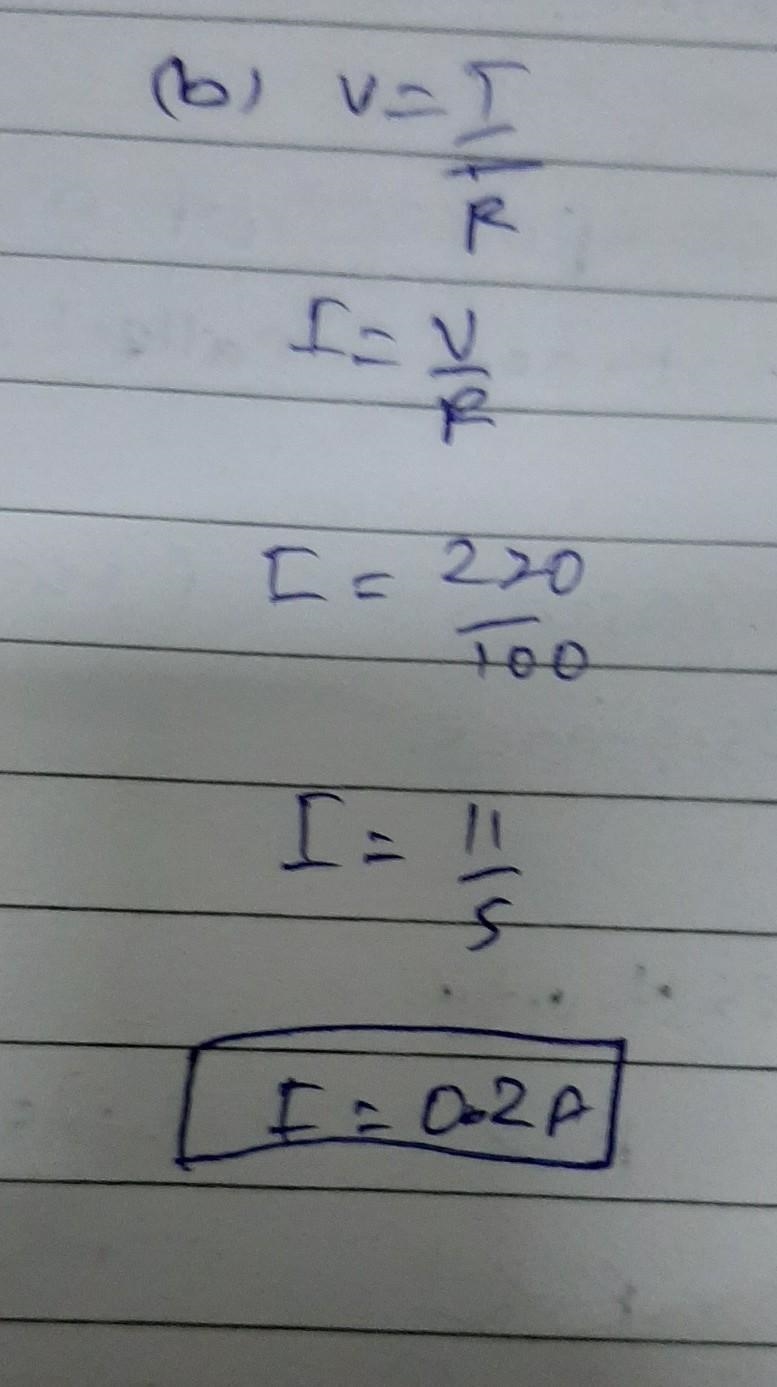 (b) V = I/R
I = V/R
I = 220/100
I = 11/5
I = 0.2A